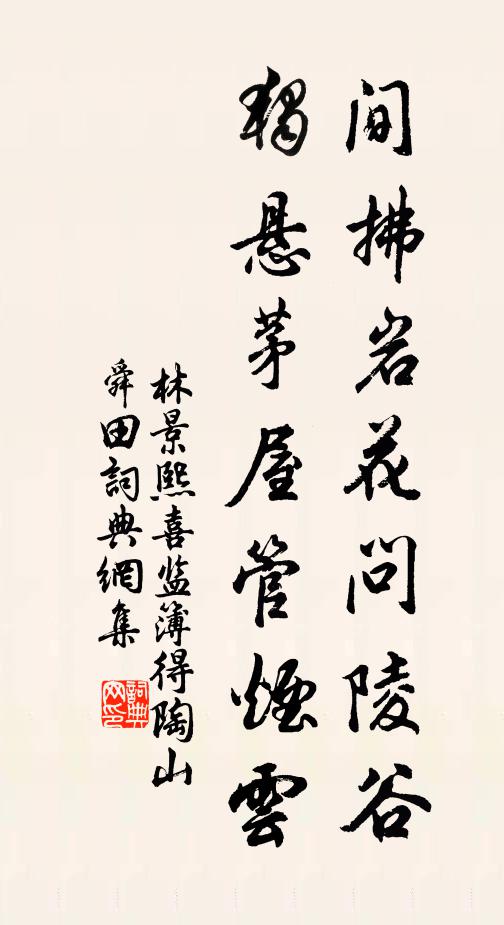 间拂岩花问陵谷
独悬茅屋管烟云
林景熙喜监簿得陶山
舜田词典网集
词典网印